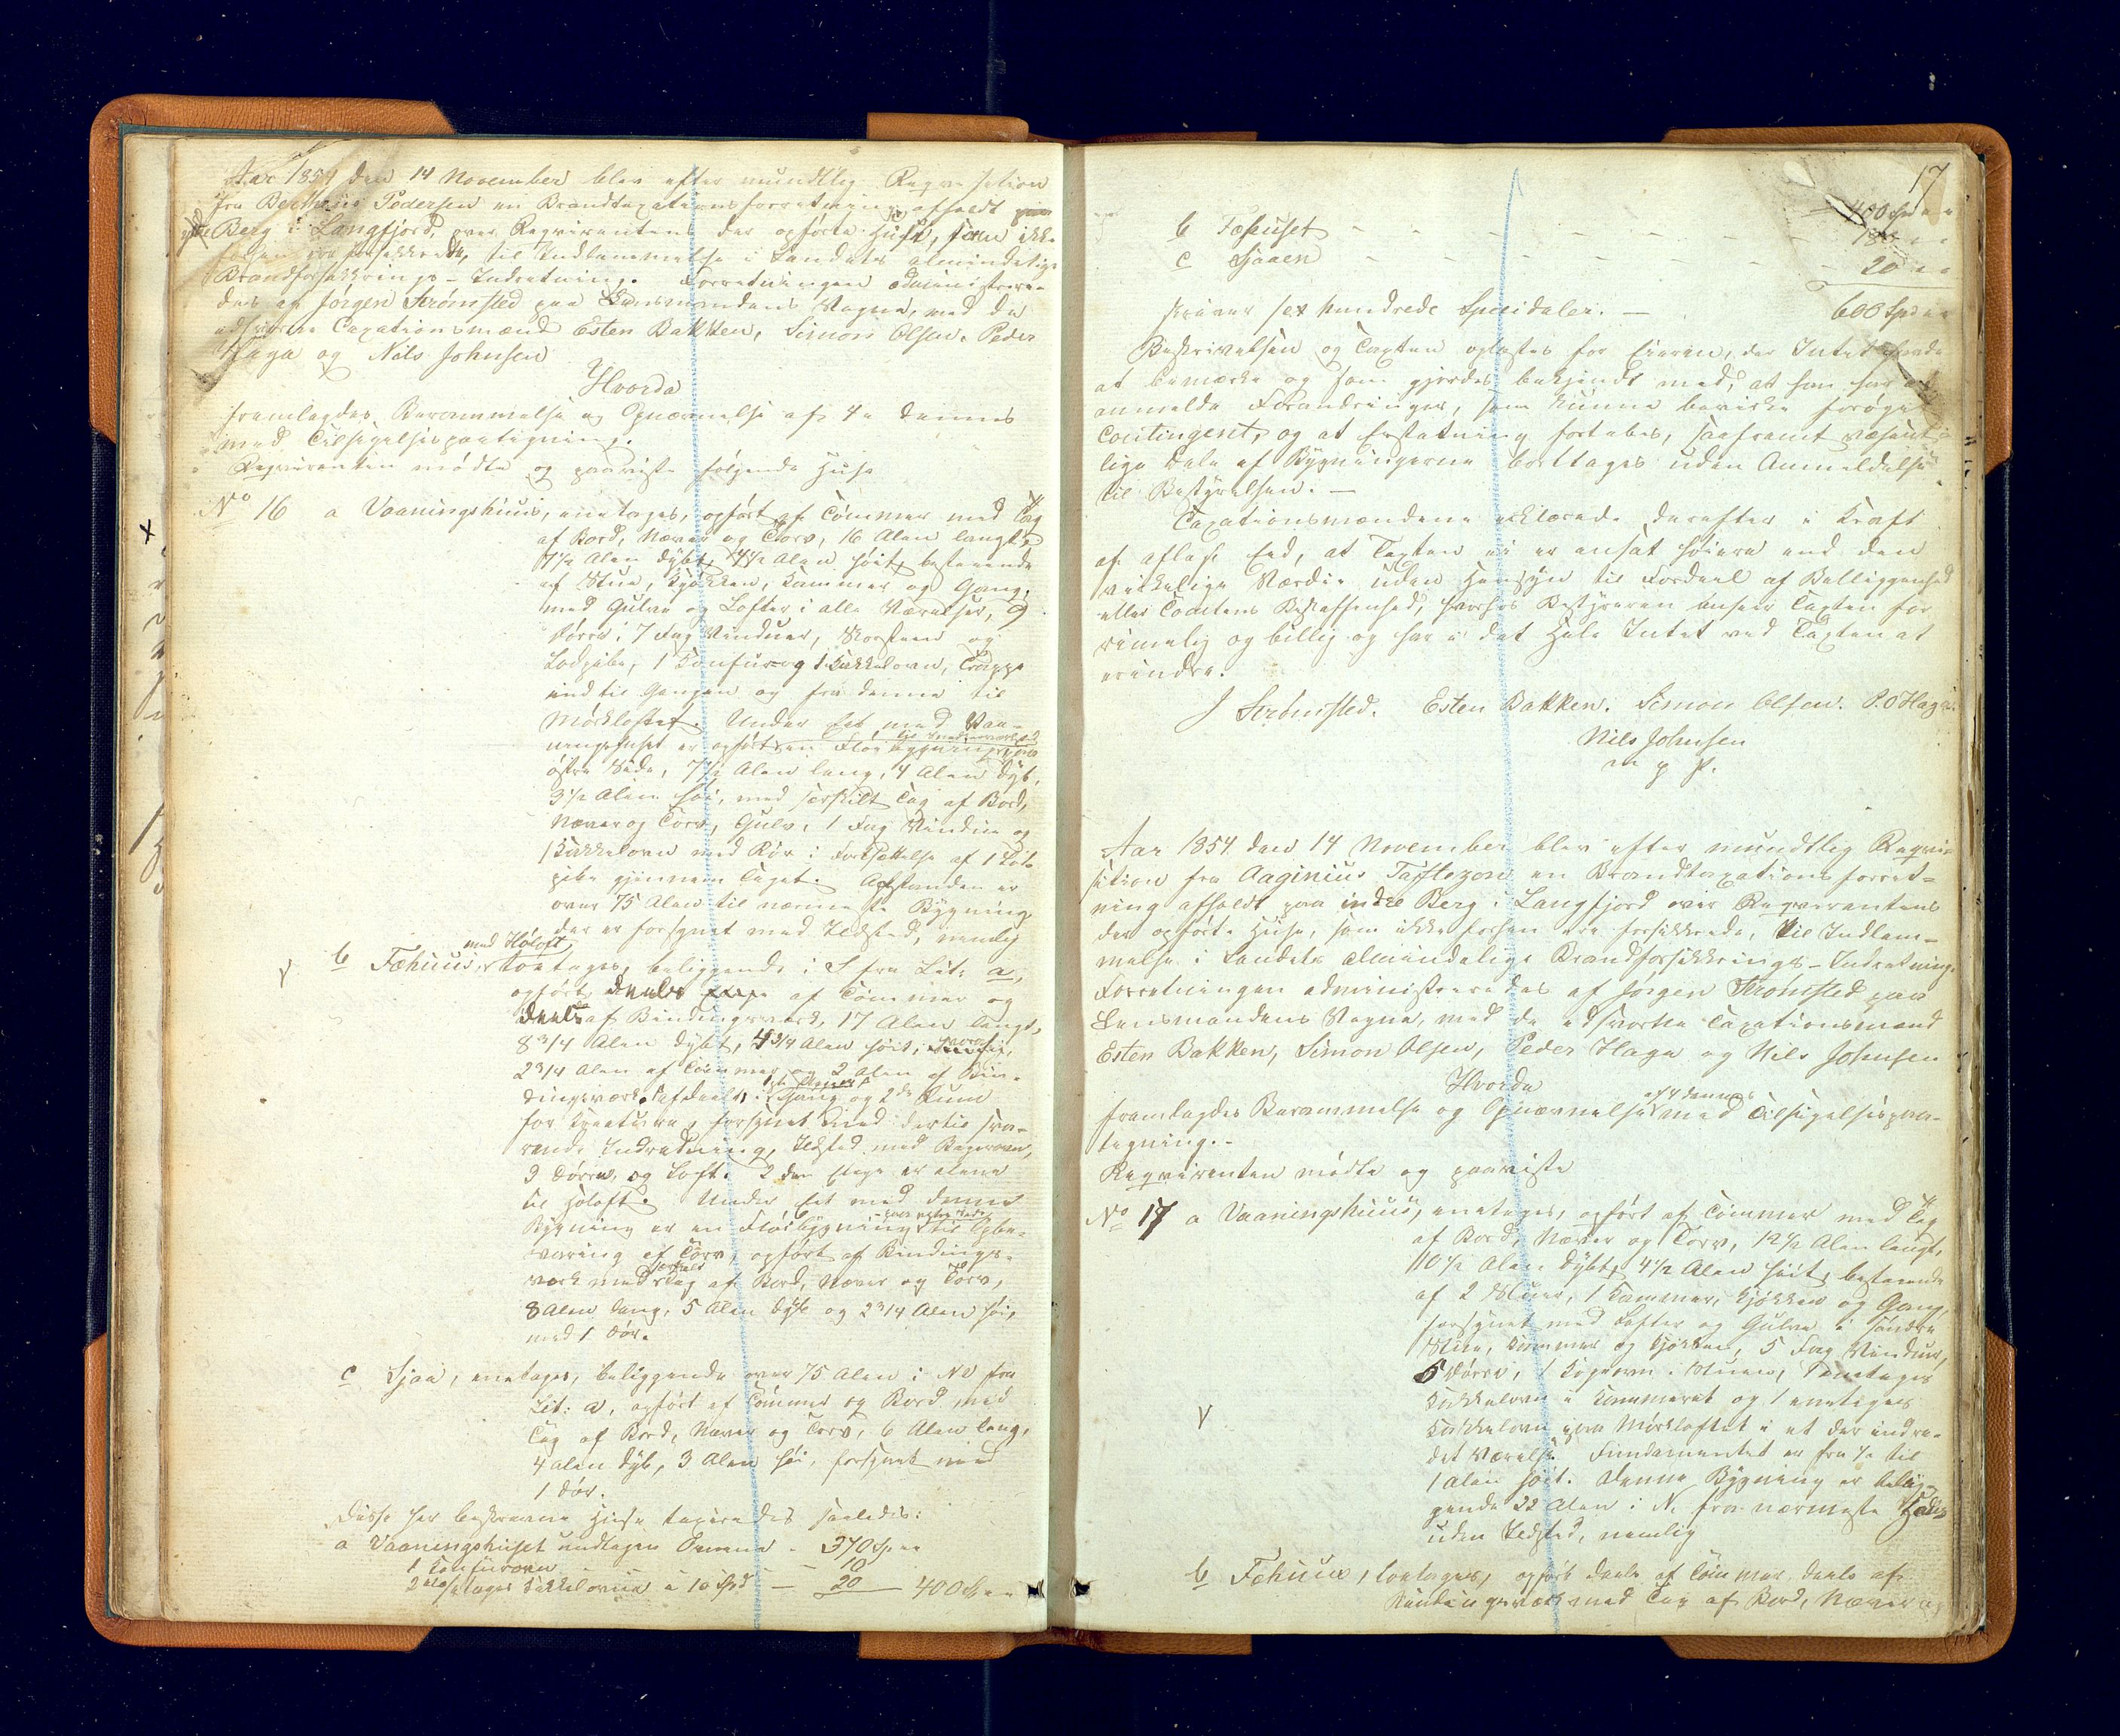 Aar 1854 den 14 November blev efter mundtlig Reqvisition
fra Bertheus Pedersen en Brandtaxationsforretning afholdt paa
ydre Berg i Langfjord, over Reqvirentens der opførte Huse, som ikke
forhen ere forsikkrede, til Indlemmelse i Landets almindelige
Brandforsikkrings-Indretning. Forretningen administrere-
des af Jørgen Strømsted paa Lensmandens Vegne, med de
edsvorne Taxationsmænd Esten Bakken, Simon Olsen, Peder
Haga og Nils Johnsen
Hvorda
fremlagdes Berammelse og Opnævnelse af 4e dennes
med Tilsigelsespaategning.
Reqvirenten mødte og paaviste følgende Huse
No 16 a Vaaningshuus, eenetages, opført af Tømmer med Tag
af Bord, Næver og Torv, 16 Alen langt,
7 1/2 Alen dybt, 4 1/2 Alen høit, bestaaende
af Stue, Kjøkken, Kammer og Gang,
med Gulve og Lofter i alle Værelser, 9
Dørre, 7 Fag Vinduer, Skorsteen og
Lodpibe, 1 Komfur og 1 Kakkelovn, Trappe
ind til Gangen og fra denne til
Mørkloftet. Under Eet med Vaa-
ningshuset er opført en Fløibygning paa
østre Side, 7 1/2 Alen lang, 4 Alen dyb,
3 1/2 Alen høi, med særskilt Tag af Bord,
Næver og Torv, Gulv, 1 Fag Vindue og
1 Kakkelovn med Rør i Fortsættelse af 1 Lod-
pibe gjennem Taget. Afstanden er
over 75 Alen til nærmeste Bygning,
der er forsynet med Ildsted, nemlig
b Fæhuus, med Høloft, toetages, beliggende i S fra Lit: a,
opført deels af Tømmer og
deels af Bindingsværk, 17 Alen langt,
8 3/4 Alen dybt, 4 3/4 Alen høit, hvoraf
2 3/4 Alen af Tømmer og 2 Alen af Bin-
dingsværk, afdeelt i 1ste Etage i Gang og 2de Rum
for Kreature, forsynet med dertil sva-
rende Indredning, Ildsted med Bagerovn,
9 Dørre, og Loft. 2den Etage er alene
til Høloft. Under Eet med denne
Bygning er en Fløibygning paa ydre Side til Opbe-
varing af Torv, opført af Bindings-
værk med særskilt Tag af Bord, Næver og Torv,
8 Alen lang, 5 Alen dyb og 2 3/4 Alen høi,
med 1 Dør.
c Sjaa, eenetages, beliggende over 75 Alen i NO fra
Lit: a, opført af Tømmer og Bord med
Tag af Bord, Næver og Torv, 6 Alen lang,
4 Alen dyb, 3 Alen høi, forsynet med
1 Dør.
Disse her beskrevne Huse taxeredes saaledes:
a Vaaningshuset undtagen Ovnene - 370 Sp
1 Komfurovn - 10
2 etages Kakkelovne a 10 Spd - 20 - 400 Sp
17
400 Spd
b Fæhuset - 180
c Sjaaen - 20
skriver sex hundrede Speciedaler. - 600 Spd
Beskrivelsen og Taxten oplæstes for Eieren, der Intet havde
at bemærke og som gjordes bekjendt med, at han har at
anmelde Forandringer, som kunne bevirke forøget
Contingent, og at Erstatning fortabes, saafremt væsent-
lige Dele af Bygningerne borttages uden Anmeldelse
til Bestyrelsen. -
Taxationsmændene erklærede derefter i Kraft
af aflagt Eed, at Taxten ei er ansat høiere end den
virkelige Værdie uden Hensyn til Fordeel af Beliggenhed
eller Tomtens Beskaffenhed, hvorhos Bestyreren anseer Taxten for
rimelig og billig og har i det Hele Intet ved Taxten at
erindre.
J Strømsted. Esten Bakken. Simon Olsen. P. O Haga.
Nils Johnsen
m p p.
Aar 1854 den 14 November blev efter mundtlig Reqvi-
sition fra Aaginius Tøfteson en Brandtaxationsforret-
ning afholdt paa indre Berg i Langfjord over Reqvirentens
der opførte Huse, som ikke forhen ere forsikkrede, til Indlem-
melse i Landets almindelige Brandforsikkrings-Indretning.
Forretningen administreredes af Jørgen Strømsted paa
Lensmandens Vegne, med de edsvorne Taxationsmænd
Esten Bakken, Simon Olsen, Peder Haga og Nils Johnsen
Hvorda
fremlagdes Berammelse og Opnævnelse af 4 dennes med Tilsigelsespaa-
tegning. -
Reqvirenten mødte og paaviste
No 17 a Vaaningshuus, eenetages, opført af Tømmer med Tag
af Bord, Næver og Torv, 12 1/2 Alen langt,
10 1/2 Alen dybt, 4 1/2 Alen høit, bestaaende
af 2 Stuer, 1 Kammer, Kjøkken og Gang,
forsynet med Lofter og Gulve i søndre
Stue, Kammer og Kjøkken, 5 Fag Vinduer,
6 Dørre, 1 Kogeovn i Stuen, 1 eenetages
Kakkelovn i Kammeret og 1 eenetages
Kakkelovn paa Mørkloftet i et der indre-
det Værelse. Fundamentet er fra 1/2 til
1 Alen høit. Denne Bygning er belig-
gende 22 Alen i N. fra nærmeste Huus
uden Ildsted, nemlig
b Fæhuus, toetages, opført deels af Tømmer deels af
Bindingsværk med Tag af Bord, Næver og